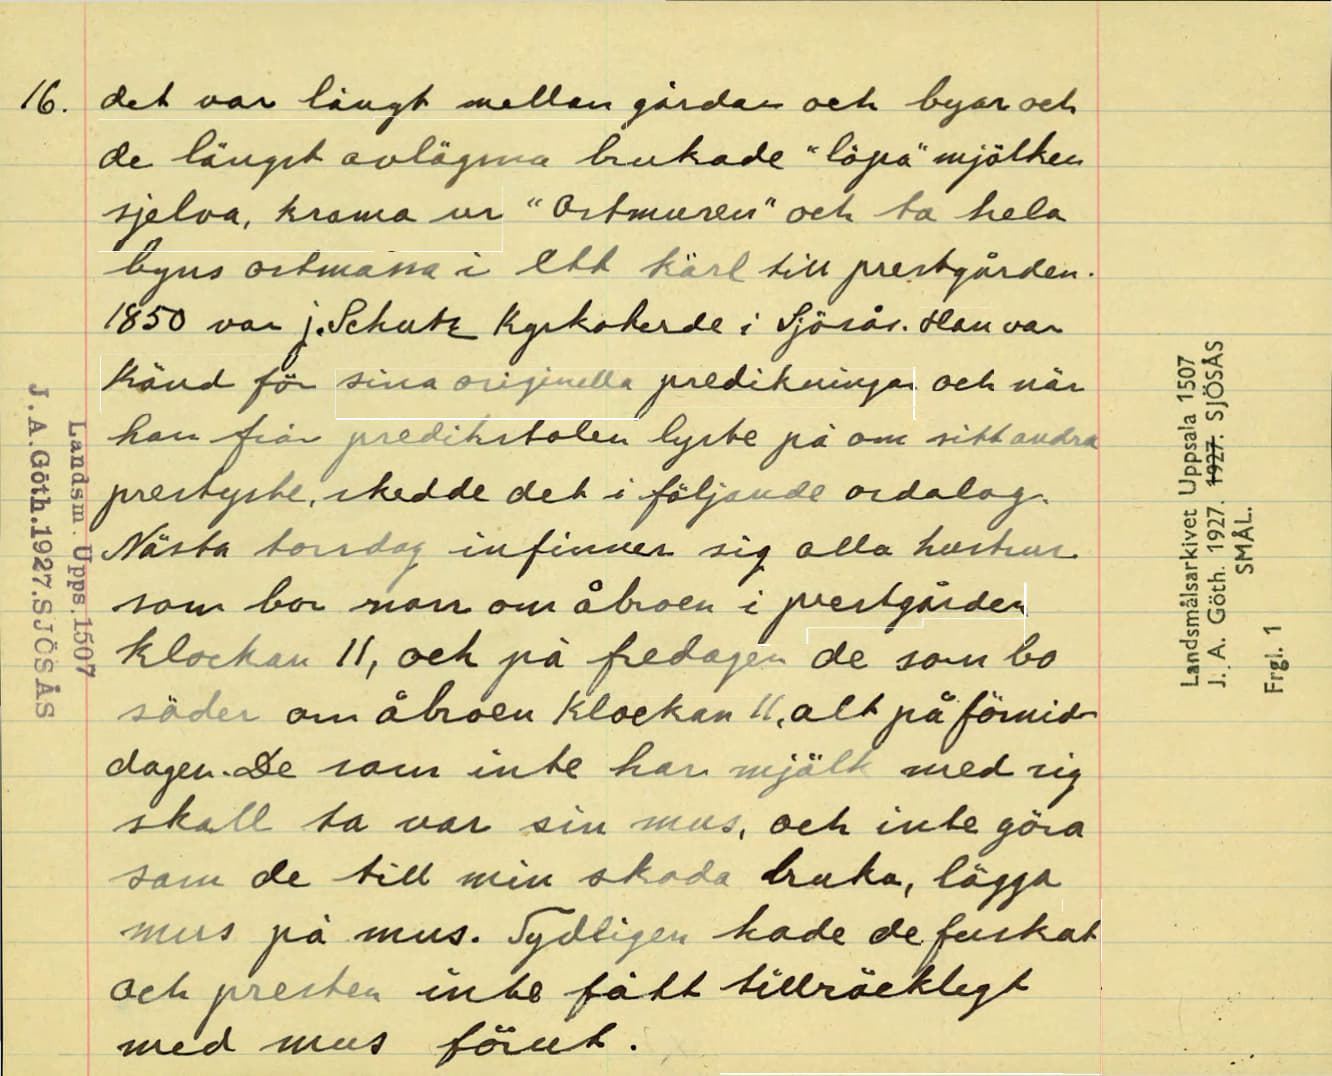 16. det var långt mellan gårdar och byar och
de längst avlägsna brukade "löpa" mjölken
sjelva, krama ur "Ostmusen" och ta hela
byns ostmassa i ett kärl till prestgården.
1850 var j. Schutz Kyrkoherde i Sjösås. Han var
Känd för sina originella predikningar och när
han från predikstolen lyste på om sitt andra
prestyste, skedde det i följande ordalag.
Nästa torsdag infinner sig alla hustrur
som bor norr om åbroen i prestgården
klockan 11, och på fredagen de som bo
söder om åbroen Klockan 11, alt på förmid-
dagen. De som inte har mjölk med sig
skall ta var sin mus, och inte göra
som de till min skada bruka, lägga
mus på mus. Tydligen hade de fuskat
och presten inte fått tillräckligt
med mus förut.
Landsm. Upps. 1507
J.A.Göth.1927.SJÖSÅS
Landsmålsarkivet Uppsala 1507
J. A. Göth. 1927. 1927. SJÖSÅS
SMÅL.
Frgl. 1